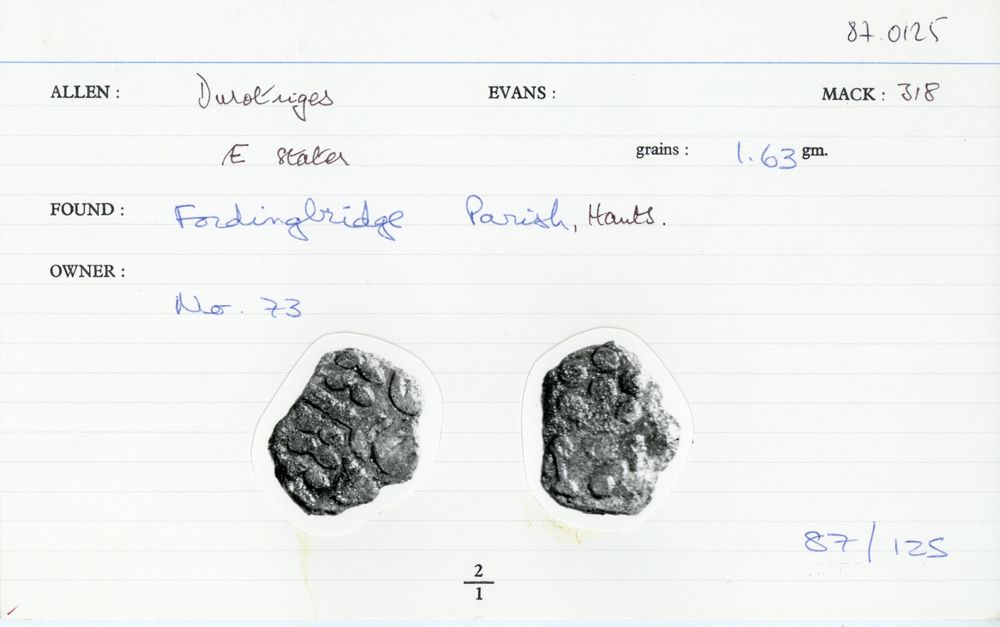 87.0125
ALLEN : Durotriges EVANS : MACK : 318
Æ stater grains : 1.63 gm.
FOUND : Fordingbridge Parish, Hants.
OWNER :
No. 73
87/125
2
1